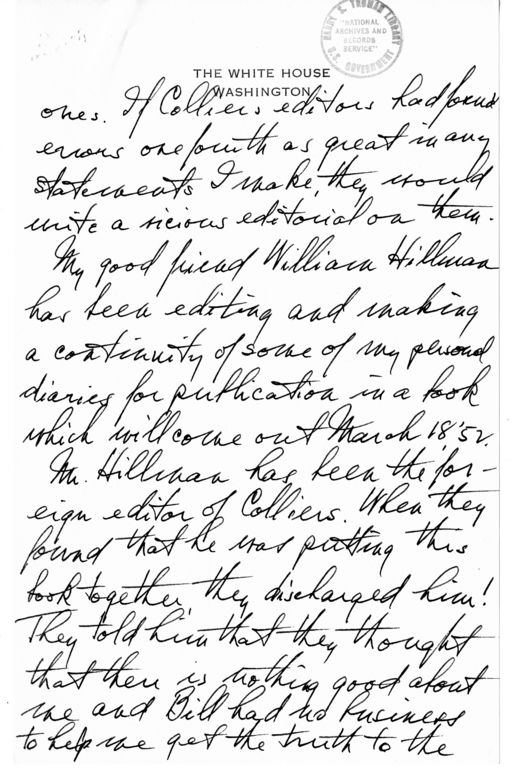 HARRY S. TRUMAN LIBRARY
"NATIONAL
ARCHIVES AND
RECORDS
SERVICE"
U.S. GOVERNMENT
THE WHITE HOUSE
WASHINGTON
ones. If Colliers editors had found
errors one fourth as great in any
statements I make, they would
write a vicious editorial on them.
My good friend William Hillman
has been editing and making
a continuity of some of my personal
diaries for publication in a book
which will come out March 18, '52.
Mr. Hillman has been the for-
eign editor of Colliers. When they
found that he was putting this
book together, they discharged him!
They told him that they thought
that there is nothing good about
me and Bill had no business
to help me get the truth to the